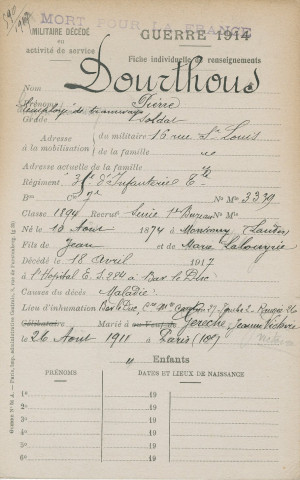 MORT POUR LA FRANCE
MILITAIRE DÉCÉDÉ
en
activité de service
GUERRE 1914
Fiche individuelle de renseignements
Nom Dourthous
Prénoms Pierre
Employé de tramways
Grade Soldat
Adresse à la mobilisation du militaire 16 rue St Louis
de la famille "
Adresse actuelle de la famille "
Régiment d'Infanterie Tle
Bon Cie No Mle 3339
Classe 1894 Recrut Seine 1er Bureau
Né le 16 Août 1874 à (Landes)
Fils de Jean et de Marie
Décédé le 18 avril 1917
à l'Hopital E. à Bar le Duc
Causes du décès Maladie
Lieu d'inhumation Bar le Duc
Célibataire Marié à ou Veuf de Jeanne
le 26 Août 1911 à Paris
Enfants
PRÉNOMS DATES ET LIEUX DE NAISSANCE
1° 19
2° 19
3° 19
4° 19
5° 19
6° 19